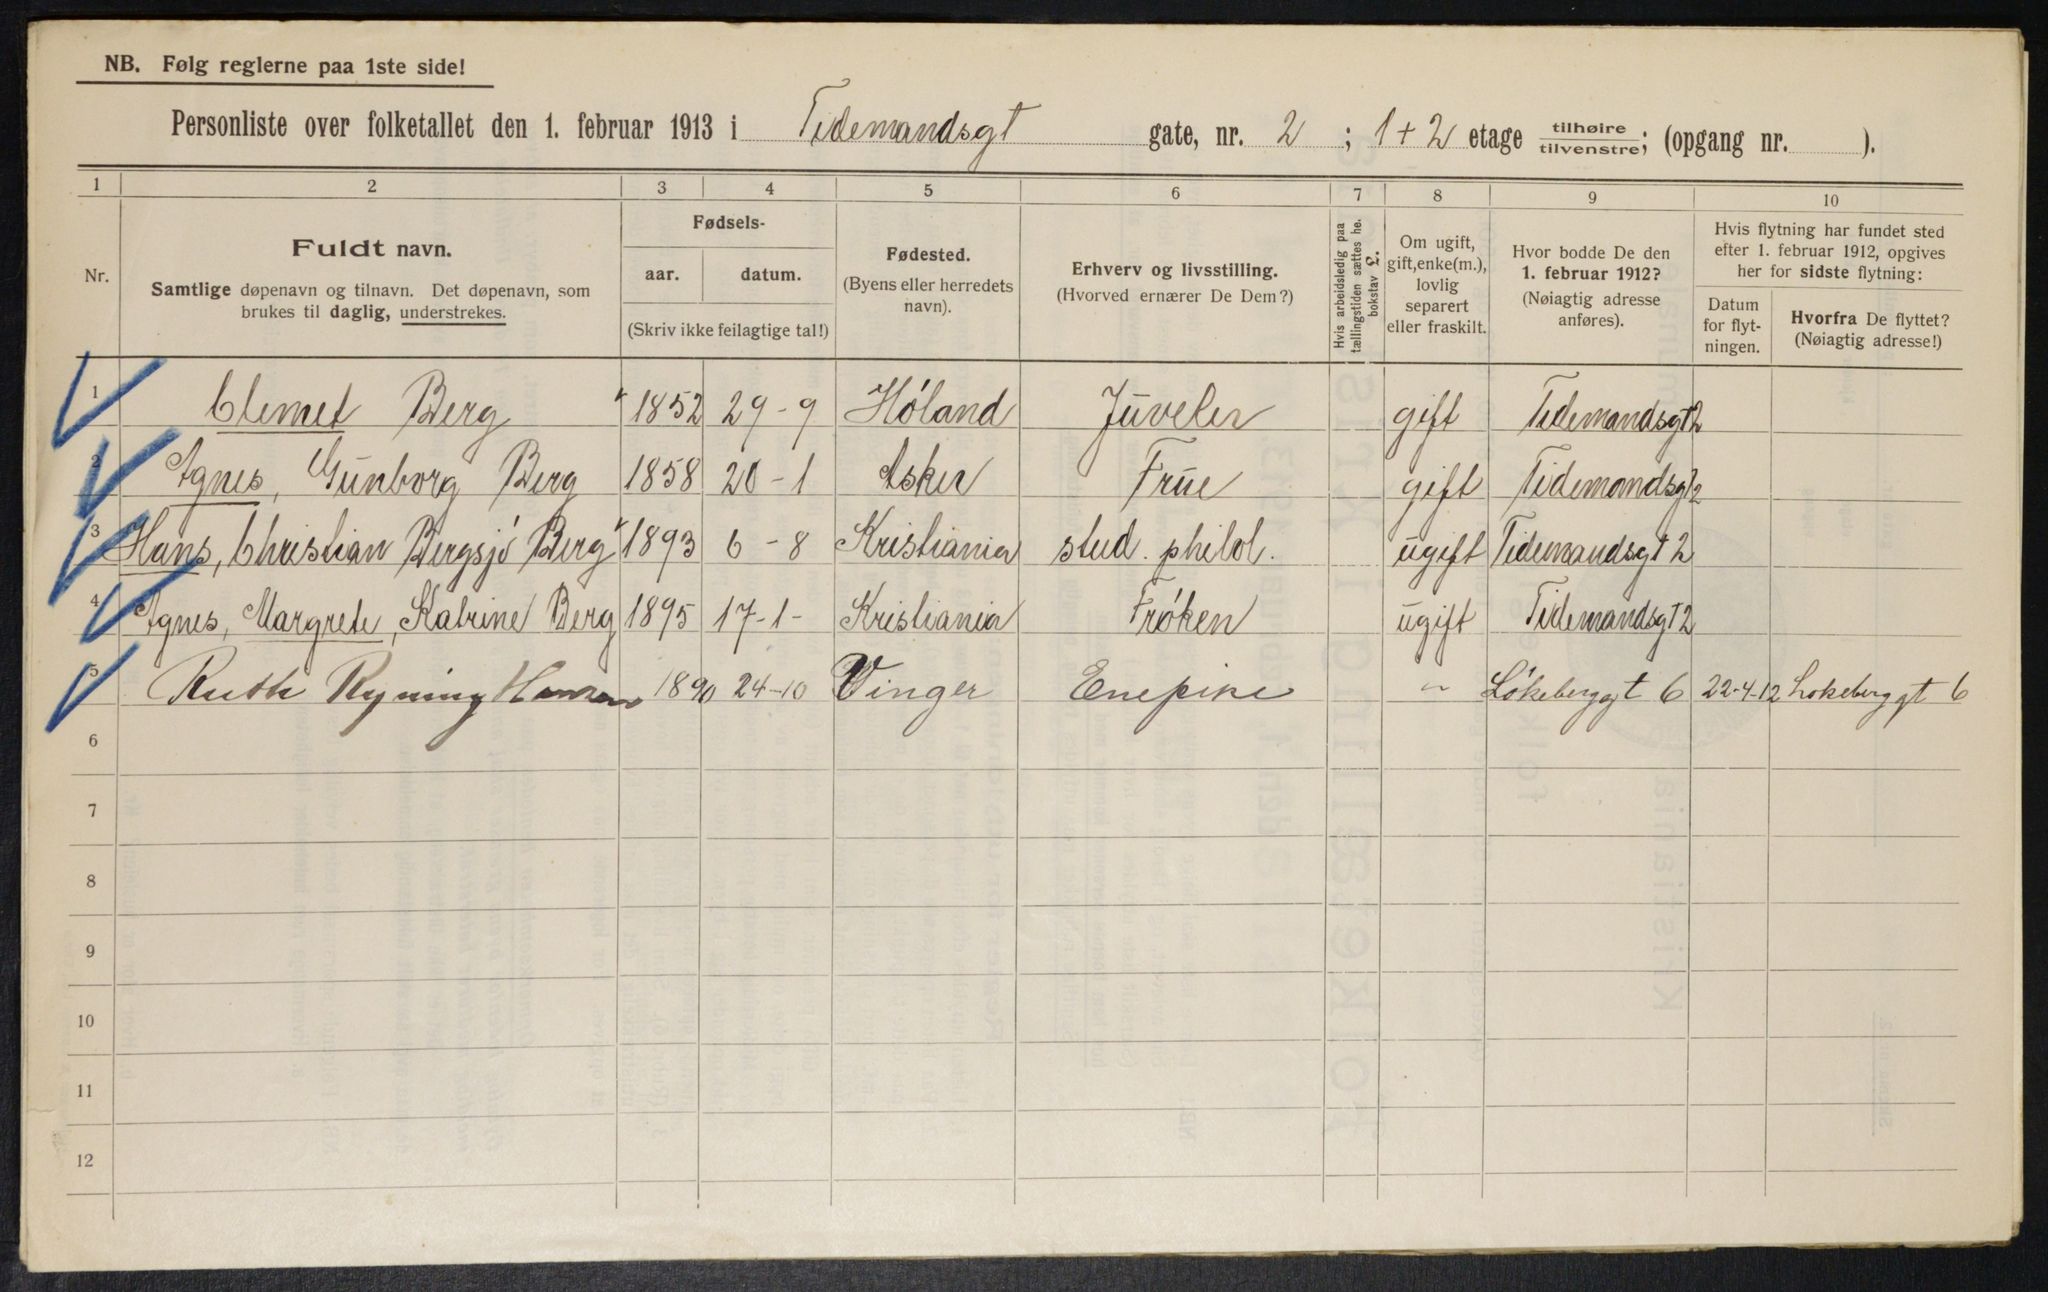 NB. Følg reglerne paa 1ste side!
Personliste over folketallet den 1. februar 1913 i Tidemandsgt gate, nr. 2 ; 1+2 etage tilhøire tilvenstre; (opgang nr. ).
1 2 3 4 5 6 7 8 9 10
Nr.
Fuldt navn.
Samtlige døpenavn og tilnavn. Det døpenavn, som
brukes til daglig, understrekes.
Fødsels-
aar. datum.
(Skriv ikke feilagtige tal!)
Fødested.
(Byens eller herredets
navn).
Erhverv og livsstilling.
(Hvorved ernærer De Dem?)
Hvis arbeidsledig paa
tællingstiden sættes he.
bokstav L.
Om ugift,
gift, enke(m.),
lovlig
separert
eller fraskilt.
Hvor bodde De den
1. februar 1912?
(Nøiagtig adresse
anføres).
Hvis flytning har fundet sted
efter 1. februar 1912, opgives
her for sidste flytning:
Datum
for flyt-
ningen.
Hvorfra De flyttet?
(Nøiagtig adresse!)
1 Clemet Berg 1852 29-9 Høland Juveler gift Tidemandsgt 2
2 Agnes, Gunborg Berg 1858 20-1 Asker Frue gift Tidemandsgt 2
3 Hans, Christian Bergsjó Berg 1893 6-8 Kristiania stud. philol. ugift Tidemandsgt 2
4 Agnes, Margrete, Katrine Berg 1895 17-1- Kristiania Frøken ugift Tidemandsgt 2
5 Ruth Ryning Hansen 1890 24-10 Vinger Enepike Løkeberggt 6 22-4-12 Løkeberggt 6
6
7
8
9
10
11
12